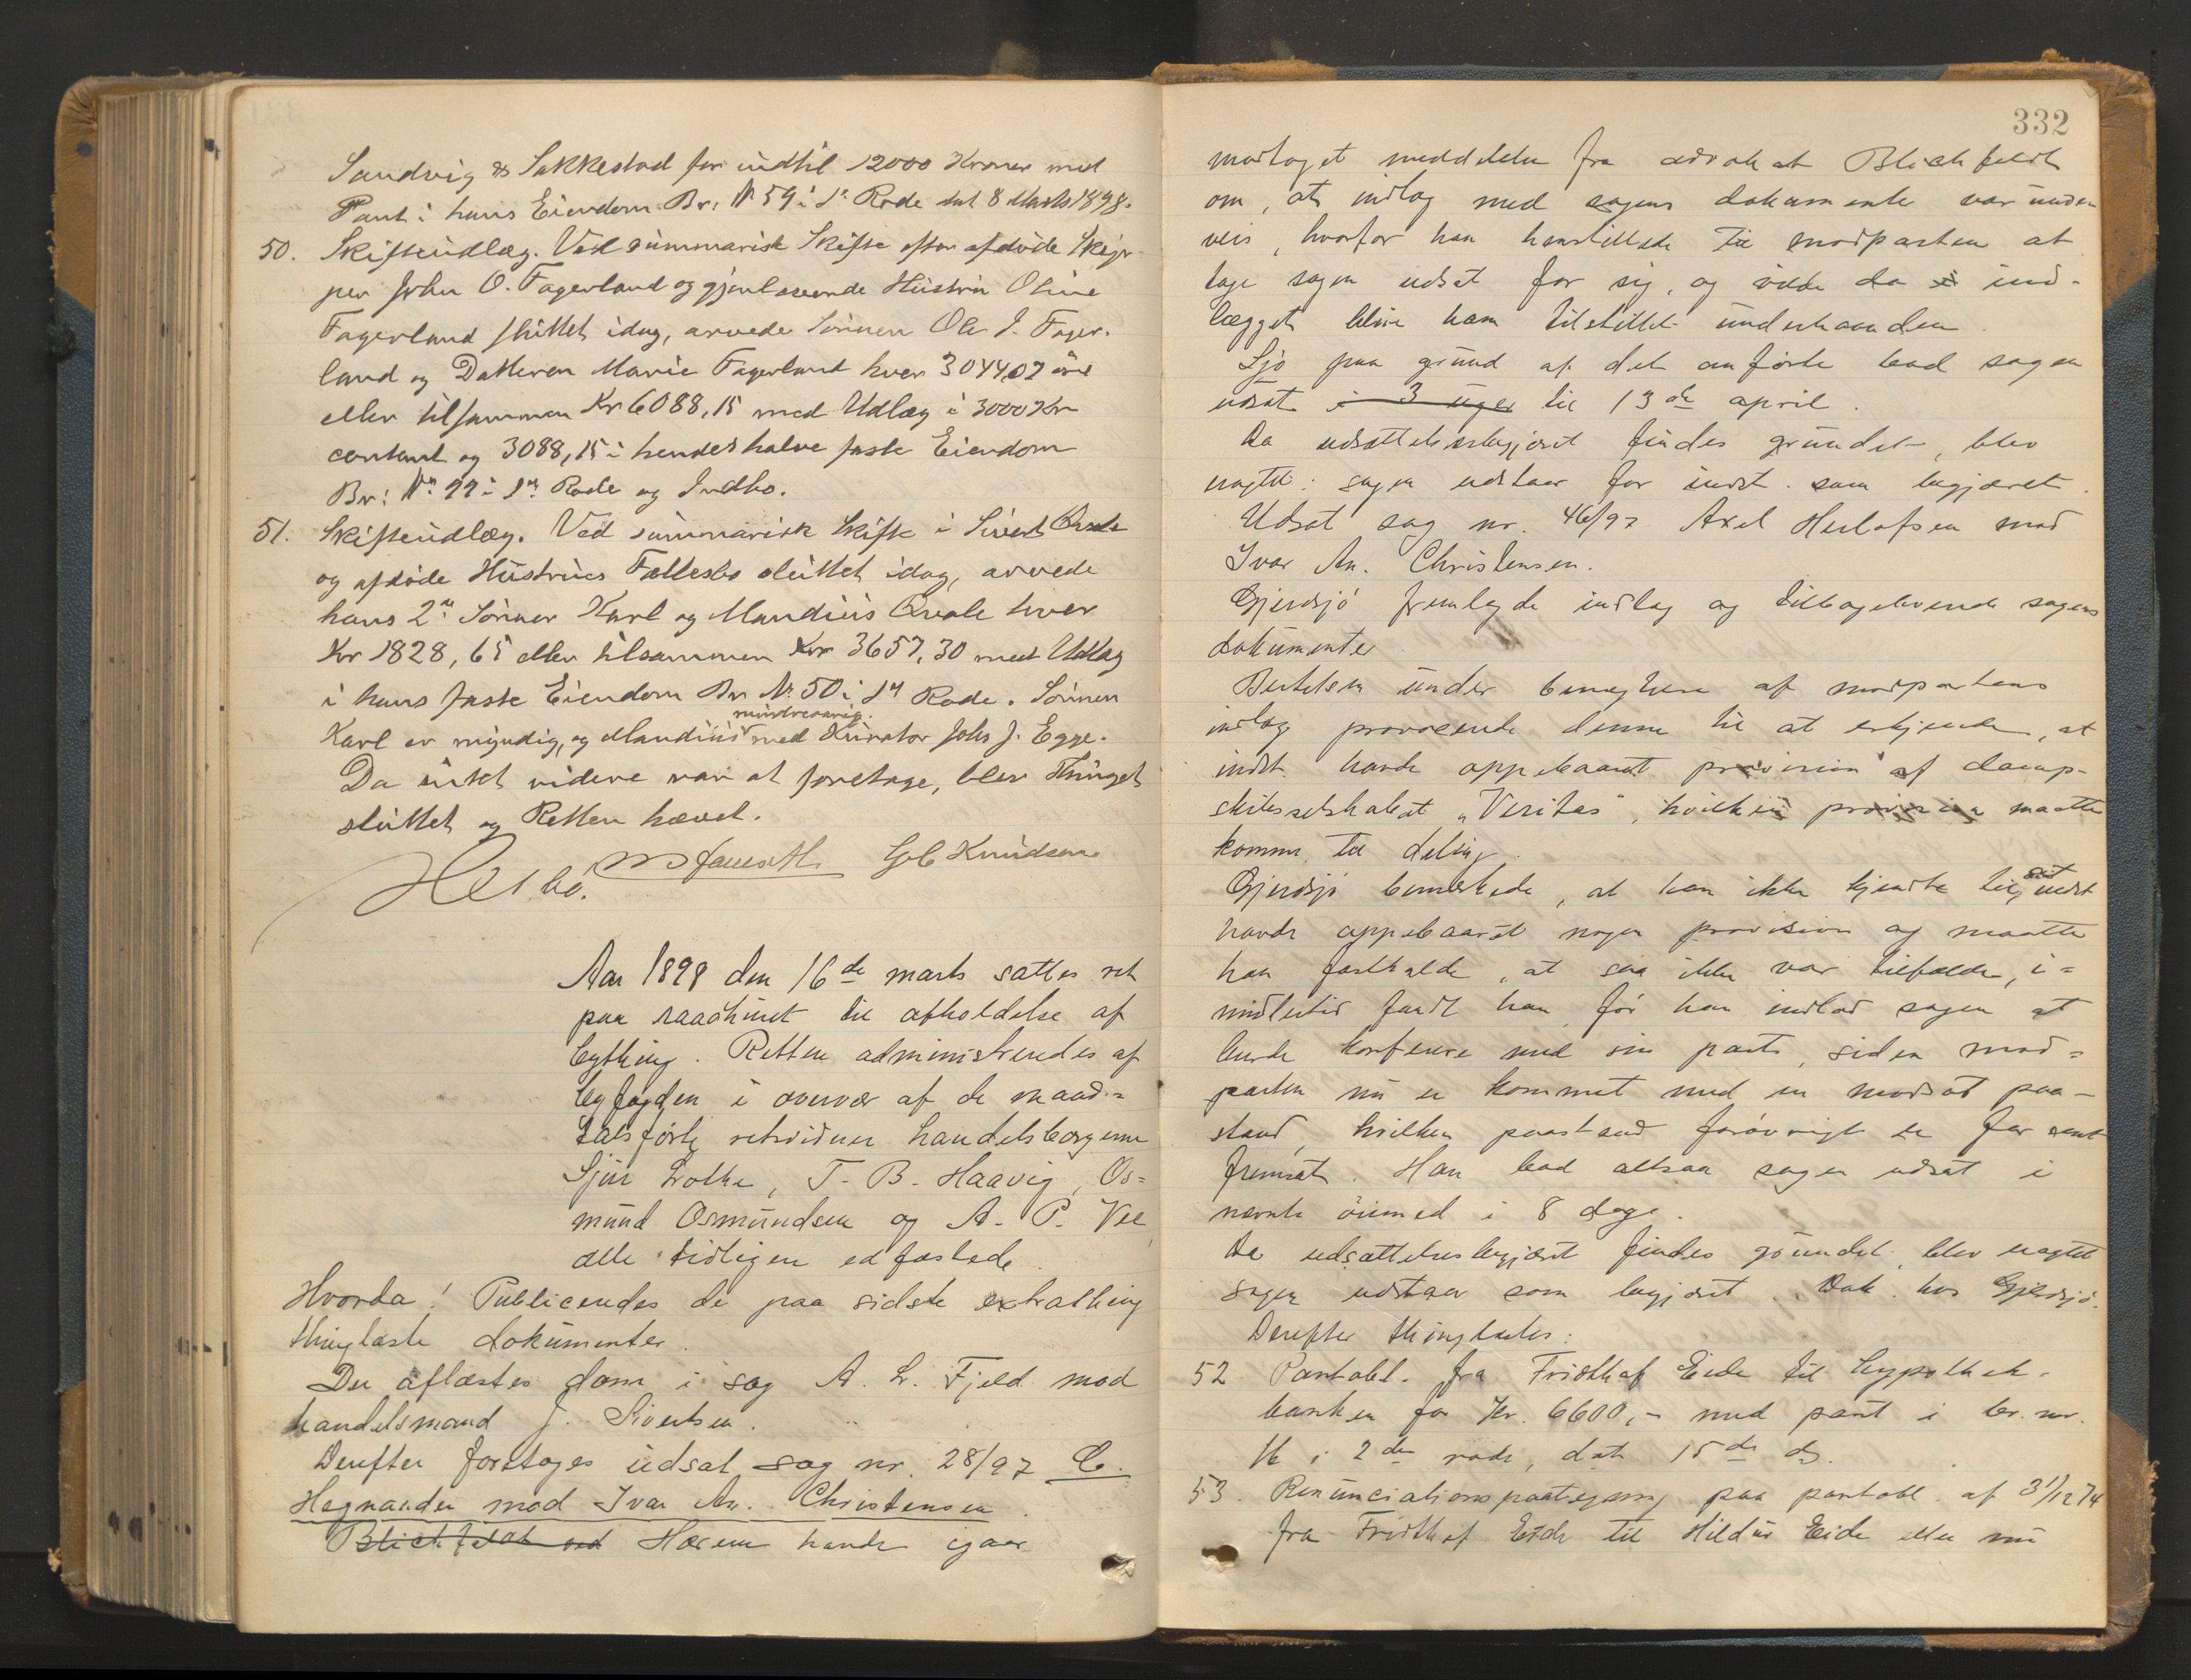 Sandvig & Sakkestad for indtil 12000 Kroner med
Pant i hans Eiendom Br. N 59 i 1ste Rode dat 8 Marts 1898.
50. Skifteudlæg. Ved summarisk Skifte efter afdøde Skip-
per John O. Fagerland og gjenlevende Hustru Oline
Fagerland sluttet idag, arvede Sønnen Ole J. Fager-
land og Datteren Marie Fagerland hver 3044,07 øre
eller tilsammen Kr 6088,15 med Udlæg i 3000 Kr
contant og 3088,15 i hendes halve faste Eiendom
Br: No 99 i 1ste Rode og Indbo.
51. Skifteudlæg. Ved summarisk Skifte i Sivert Qvale
og afdøde Hustrues Fællesbo sluttet idag, arvede
hans 2de Sønner Karl og Mandius Qvale hver
Kr 1828,65 eller tilsammen Kr 3657,30 med Udlæg
i hans faste Eiendom Br N. 50 i 1ste Rode. Sønnen
mindreaarig
Karl er myndig, og Mandius med Kurator Johs J. Egge.
Da intet videre var at foretage, blev Thinget
sluttet og Retten hævet.
Knudsen
Aar 1898 den 16de marts sattes ret
paa raadhuset til afholdelse af
bything. Retten administreredes af
byfogden i overvær af de maad-
talsførte retsvidner handelsborgerne
Sjur Lothe, T. B. Haavig, Os-
mund Osmundsen og A. P. Vee
alle tidligere edfæstede.
Hvorda! Publiceredes de paa sidste extrathing
thinglæste dokumenter.
Der aflæstes dom i sag A. L. Fjeld mod
handelsmand J. Sivertsen.
Derefter foretages udsat sag nr. 28/97 C.
Hagnander mod Ivar An. Christensen.
Blichfeldt ved Hærem havde igaar
332
modtaget meddelelse fra advokat Blichfeldt
om, at indlæg med sagens dokumenter var under
veis, hvorfor han henstillede til modparten at
tage sagen udsat for sig, og vilde da ind-
lægget blive ham tilstillet underhaanden.
Sjo paa grund af det anførte bad sagen
udsat i 3 uger til 13de april.
Da udsættelsesbegjæret findes grundet, blev
eragtet: sagen udstaar for indst. som begjæret.
Udsat sag nr. 46/97 Axel Herlofsen mod
Ivar An. Christensen.
Gjerdsjø fremlagde indlæg og tilbageleverede sagens
dokumenter.
Bertelsen under benægtelse af modpartens
indlæg provocerede denne til at erkjende, at
indst. havde oppebaaret provision af damp-
skibsselskabet "Veritas", hvilken provision maatte
komme til deling.
Gjerdsjø bemærkede, at han ikke kjendte til, at indst
havde oppebaaret nogen provision og maatte
han fastholde, at saa ikke var tilfælde, i-
midlertid fandt han, før han indlod sagen at
burde konferere med sin part, siden mod-
parten nu er kommet med en modsat paa-
stand, hvilken paastand forøvrigt er for sent
fremsat. Han bad altsaa sagen udsat i
nævnte øiemed i 8 dage.
Da udsættelsesbegjæret findes grundet, blev eragtet
sagen udstaar som begjæret. Dok. hos Gjerdsjø.
Derefter thinglæstes:
52 Pantobl. fra Fridthjof Eide til hypothek-
banken for Kr. 6600,- med pant i br. nr.
16 i 2den rode, dat. 15de ds.
53. Renunciationspaategning paa pantobl. af 31/12 74
fra Fridthjof Eide til Hildur Eide eller nu